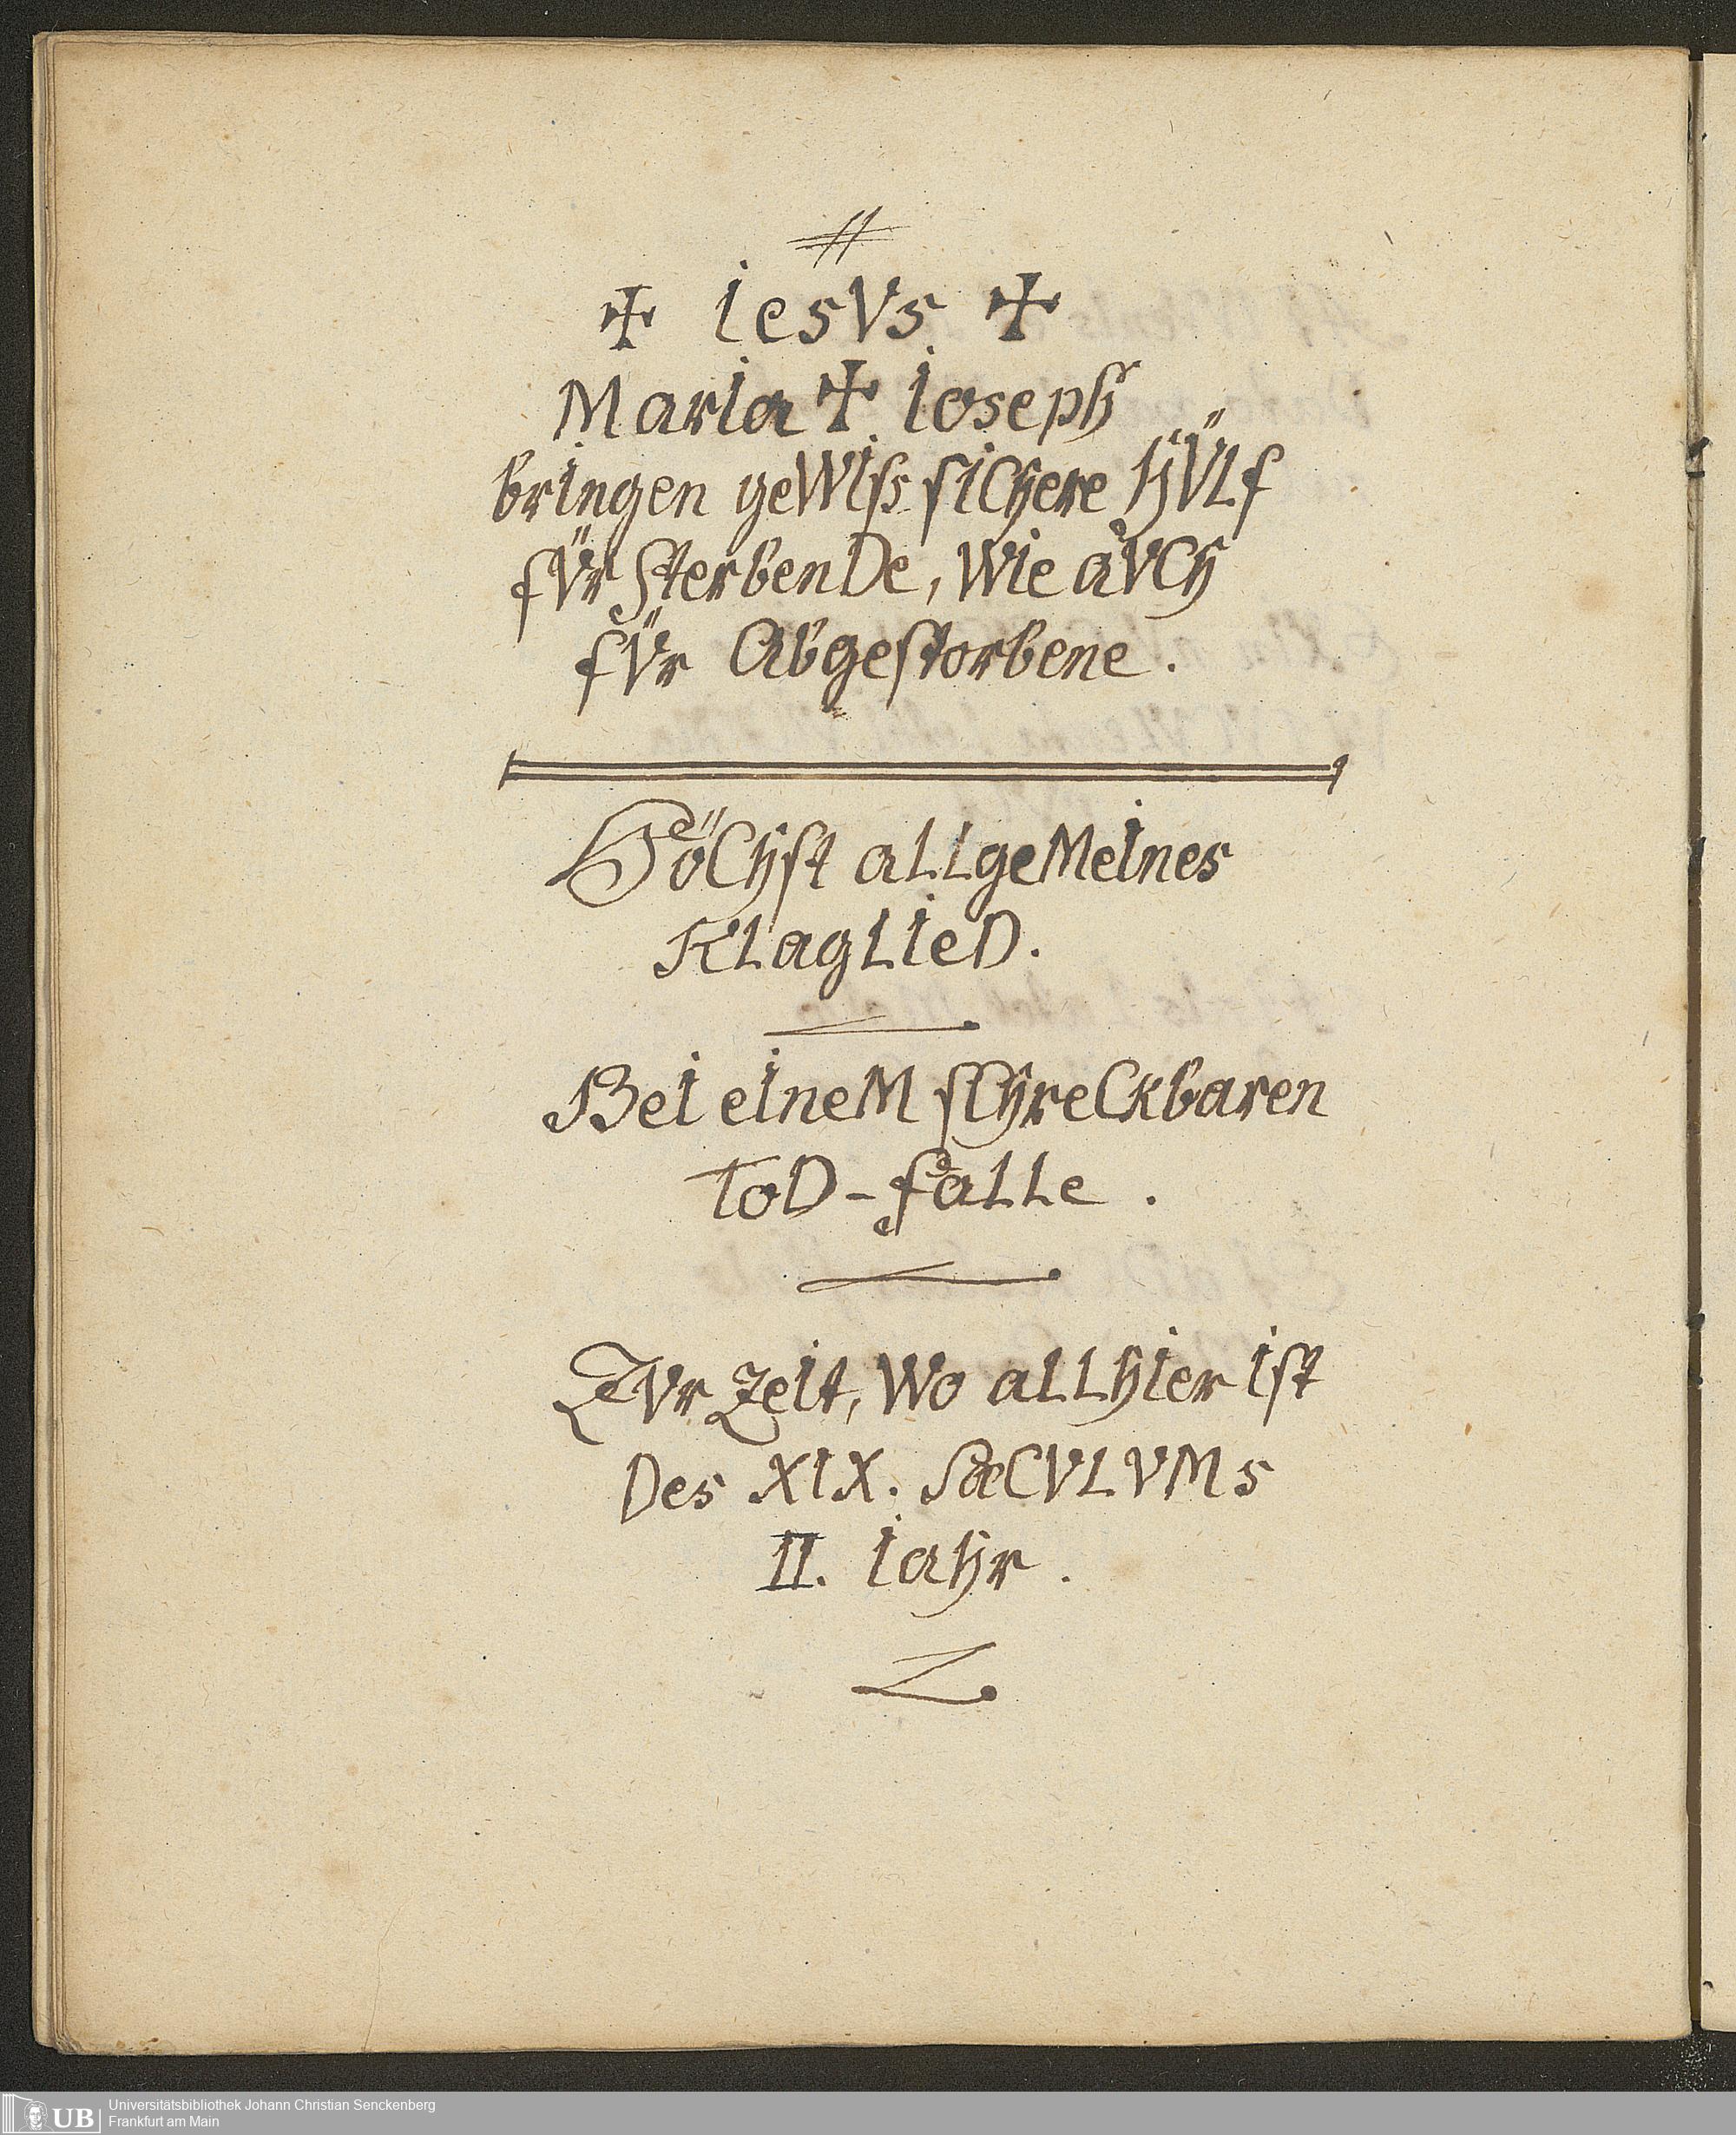 ✠ IesVs ✠
MarIa ✠ Ioseph
brIngen geWIss sIChere HÜLf
fÜr SterbenDe, WIe aVCh
fÜr Abgestorbene.
HöChst aLLgeMeInes
KLagLIeD.
BeI eIneM sChreCkbaren
ToD-faLLe.
ZVr ZeIt, Wo aLLhIer Ist
Des XIX. SæCVLVMs
II. Iahr.
UB Universitätsbibliothek Johann Christian Senckenberg
Frankfurt am Main